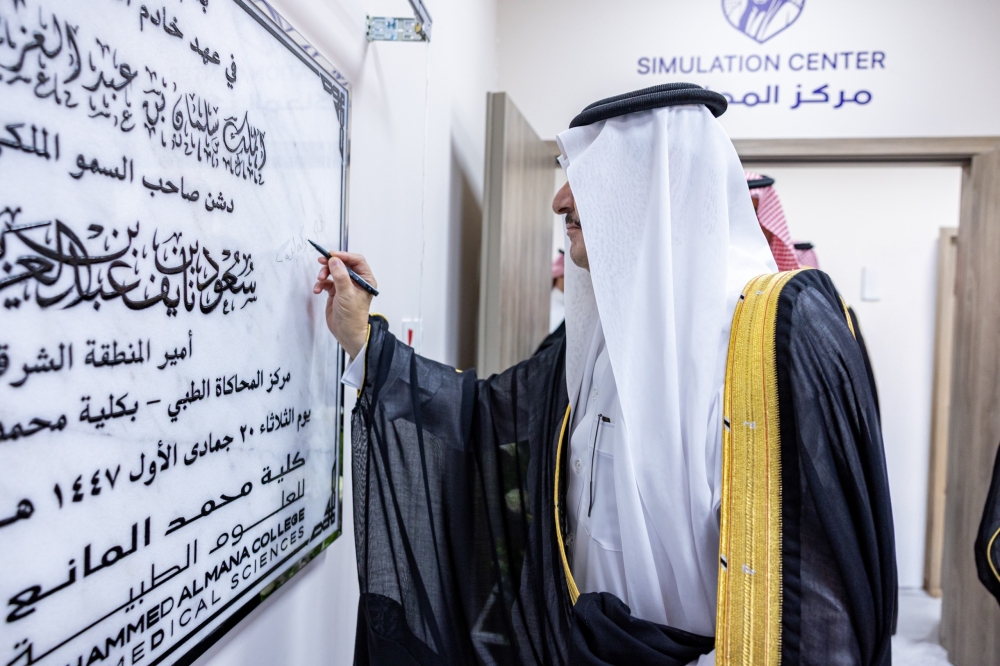 في عهد خادم
الملك سلمان بن عبد العزيز
دشن صاحب السمو الملكي
سعود بن نايف بن عبد العزيز
أمير المنطقة الشرق
مركز المحاكاة الطبي – بكلية محمد
يوم الثلاثاء ٢٠ جمادى الأول ١٤٤٧ هـ
كلية محمد المانع
للعلوم الطبية
HAMMED ALMANA COLLEGE
MEDICAL SCIENCES
SIMULATION CENTER
مركز المح